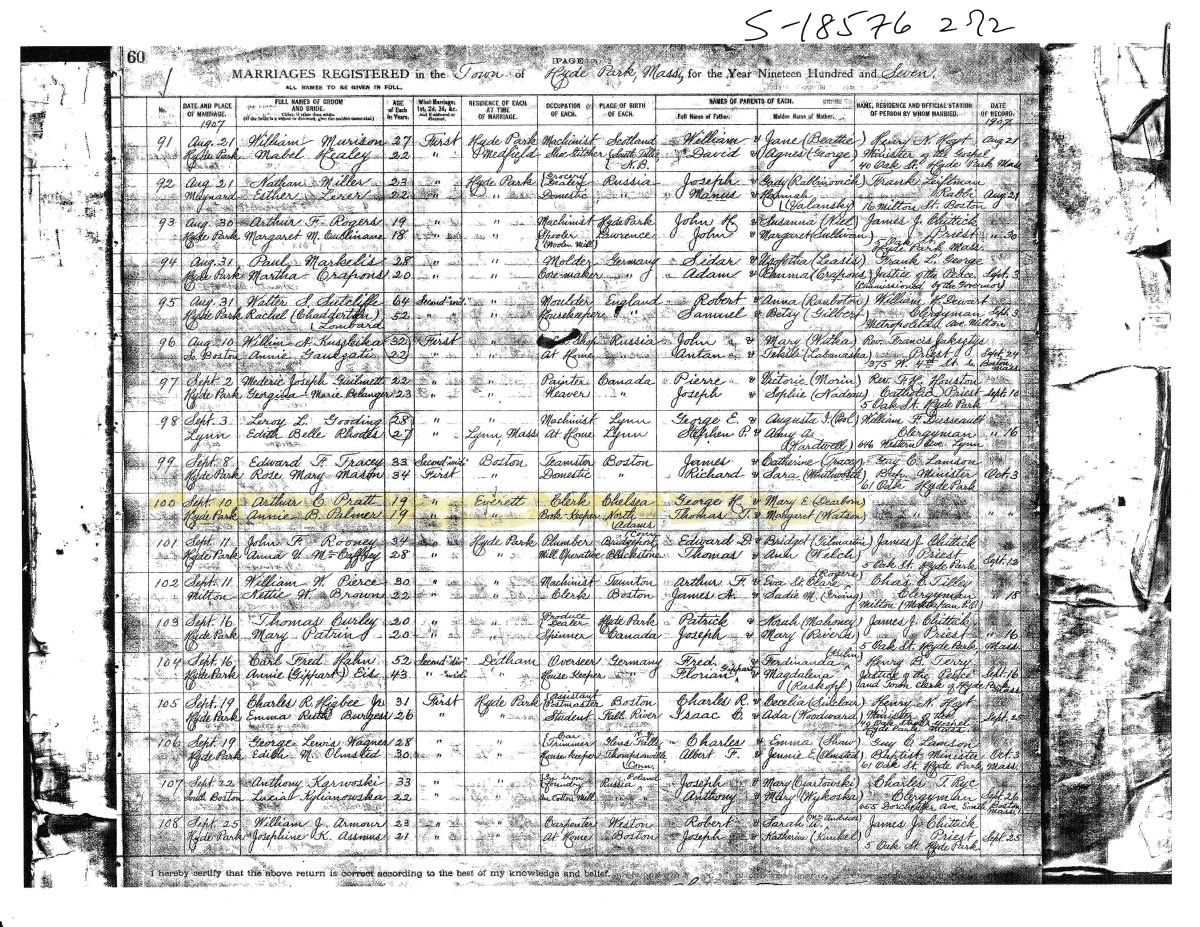 S-18576 2 of 2
60
PAGE
MARRIAGES REGISTERED in the Town of Hyde Park, Mass., for the Year Nineteen Hundred and Seven.
ALL NAMES TO BE GIVEN IN FULL.
No. DATE AND PLACE OF MARRIAGE. FULL NAMES OF GROOM AND BRIDE. AGE of Each in Years. What Marriage, 1st, 2d, 3d, &c. RESIDENCE OF EACH AT TIME OF MARRIAGE. OCCUPATION OF EACH. PLACE OF BIRTH OF EACH. NAMES OF PARENTS OF EACH. Full Name of Father. Maiden Name of Mother. NAME, RESIDENCE AND OFFICIAL STATION OF PERSON BY WHOM MARRIED. DATE OF RECORD.
1907 1907
91 Aug. 21 William Murison 27 First Hyde Park Machinist Scotland William & Jane (Beattie) Henry N. Hoyt Aug 21
Hyde Park Mabel Healey 22 " Medfield David & Agnes (George) Minister of the Gospel
N.B. 40 Oak St. Hyde Park Mass
92 Aug. 21 Nathan Miller 23 " Hyde Park Grocery Dealer Russia Joseph & (Rabbinovich) Frank
Maynard Esther Lerer 22 " " Domestic " Manus & Hannah Rabbi Aug 21
16 Milton St. Boston
93 Aug. 30 Arthur F. Rogers 19 " " Machinist Hyde Park John H. & Susanna (Niel) James J. Chittick
Hyde Park Margaret M. Cullinane 18 " " Spooler Lawrence John & Margaret (Sullivan) Priest " 30
(Woolen Mill) Hyde Park Mass.
94 Aug. 31 Paul Markelis 28 " " Molder Germany Sidar & (Leasis) Frank L. George
Hyde Park Martha Crapons 20 " " Core-maker " Adam & Emma (Crapons) Justice of the Peace Sept. 3
(Commissioned by the Governor)
95 Aug. 31 Walter S. Sutcliffe 64 Second " Moulder England Robert & Anna William H. Dewart
Hyde Park Rachel (Chadderton) 52 " " Housekeeper " Samuel & Betsy (Gilbert) Clergyman Sept. 3
Lombard Metropolitan Ave. Milton
96 Aug. 10 A. Kuszleika 32 First " Shop Russia John & Mary (Witka) Rev. Francis
So. Boston Annie 22 " " At Home " Antan & Tekile Priest Sept. 24
375 W. 4th St. So. Boston Mass
97 Sept. 2 Mederic Joseph Guilmett 22 " " Painter Canada Pierre & Victorie (Morin) Rev. F. H. Houston
Hyde Park Georgina Marie Belanger 23 " " Weaver " Joseph & Sophie (Nadeau) Catholic Priest Sept. 10
5 Oak St. Hyde Park
98 Sept. 3 Leroy L. Gooding 28 " " Machinist Lynn George E. & Augusta J. William F. Dusseault
Lynn Edith Belle Rhodes 27 " Lynn, Mass At Home Lynn Stephen P. & Amy A. Clergyman " 16
(Hardwell) 646 Western Ave. Lynn
99 Sept. 8 Edward F. Tracey 33 Second Boston Teamster Boston James & Catherine (Tracey) Guy C. Lamson
Hyde Park Rose Mary Mason 34 First " Domestic " Richard & Sara (Whitworth) Minister Oct. 3
61 Oak Hyde Park
100 Sept. 10 Arthur C. Pratt 19 " Everett Clerk Chelsea George H. & Mary E. (Dearbon)
Hyde Park Annie B. Palmer 19 " " Book-Keeper North Adams Thomas T. & Margaret (Watson) " "
101 Sept. 11 John F. Rooney 34 " Hyde Park Plumber Bridgeport Edward D. & Bridget (Gilmartin) James J. Chittick
Hyde Park Anna V. McCaffrey 28 " " Mill Operative Blackstone Thomas & Anh (Welch) Priest Sept. 12
5 Oak St. Hyde Park
102 Sept. 11 William W. Pierce 30 " " Machinist Taunton Arthur F. & Eva St. Clare (Rogers) Chas. E. Tilley
Milton Nettie W. Brown 22 " " Clerk Boston James A. & Sadie M. (Irving) Clergyman " 18
Milton (Mattapan P.O.)
103 Sept. 16 Thomas Curley 20 " " Produce Dealer Hyde Park Patrick & Norah (Mahoney) James J. Chittick
Hyde Park Mary Patrin 20 " " Spinner Canada Joseph & Mary (Rivers) Priest " 16
5 Oak St. Hyde Park Mass.
104 Sept. 16 Carl Fred Hahn 52 Second "div" Dedham Overseer Germany Fred & Ferdinanda (Kuhn) Henry B. Terry
Hyde Park Annie (Gippart) Eis 43 " "wid" " House Keeper " Florian Gippart & Magdalena Justice of the Peace Sept. 16
(Raskopf) and Town Clerk of Hyde Park Mass
105 Sept. 19 Charles R. Higbee Jr. 31 First Hyde Park Assistant Postmaster Boston Charles R. & Cecelia (Sinclair) Henry N. Hoyt
Hyde Park Emma Ruth Burgess 26 " " Student Fall River Isaac C. & Ada (Woodward) Minister of the Gospel Sept. 25
40 Oak St. Hyde Park Mass
106 Sept. 19 George Lewis Wagner 28 " " Car Trimmer Glens Falls N.Y. Charles & Emma (Shaw) Guy C. Lamson
Hyde Park Edith M. Olmsted 30 " " House keeper Thompsonville Conn. Albert F. & Jennie E. (Olmsted) Baptist Minister Oct. 3
61 Oak St. Hyde Park Mass.
107 Sept. 22 Anthony Karwoski 33 " " In Iron Foundry Poland Russia Joseph & Mary Charles T. Ryc
South Boston Lucia Kylianowska 22 " " In Cotton Mill " Anthony & Mary (Wykoska) Clergyman Sept. 26
665 Dorchester Ave. South Boston Mass.
108 Sept. 25 William J. Armour 23 " " Carpenter Weston Robert & Sarah James J. Chittick
Hyde Park Josephine K. Asmus 21 " " At Home Boston Joseph & Katherine (Kunkel) Priest Sept. 25
5 Oak St. Hyde Park
I hereby certify that the above return is correct according to the best of my knowledge and belief.